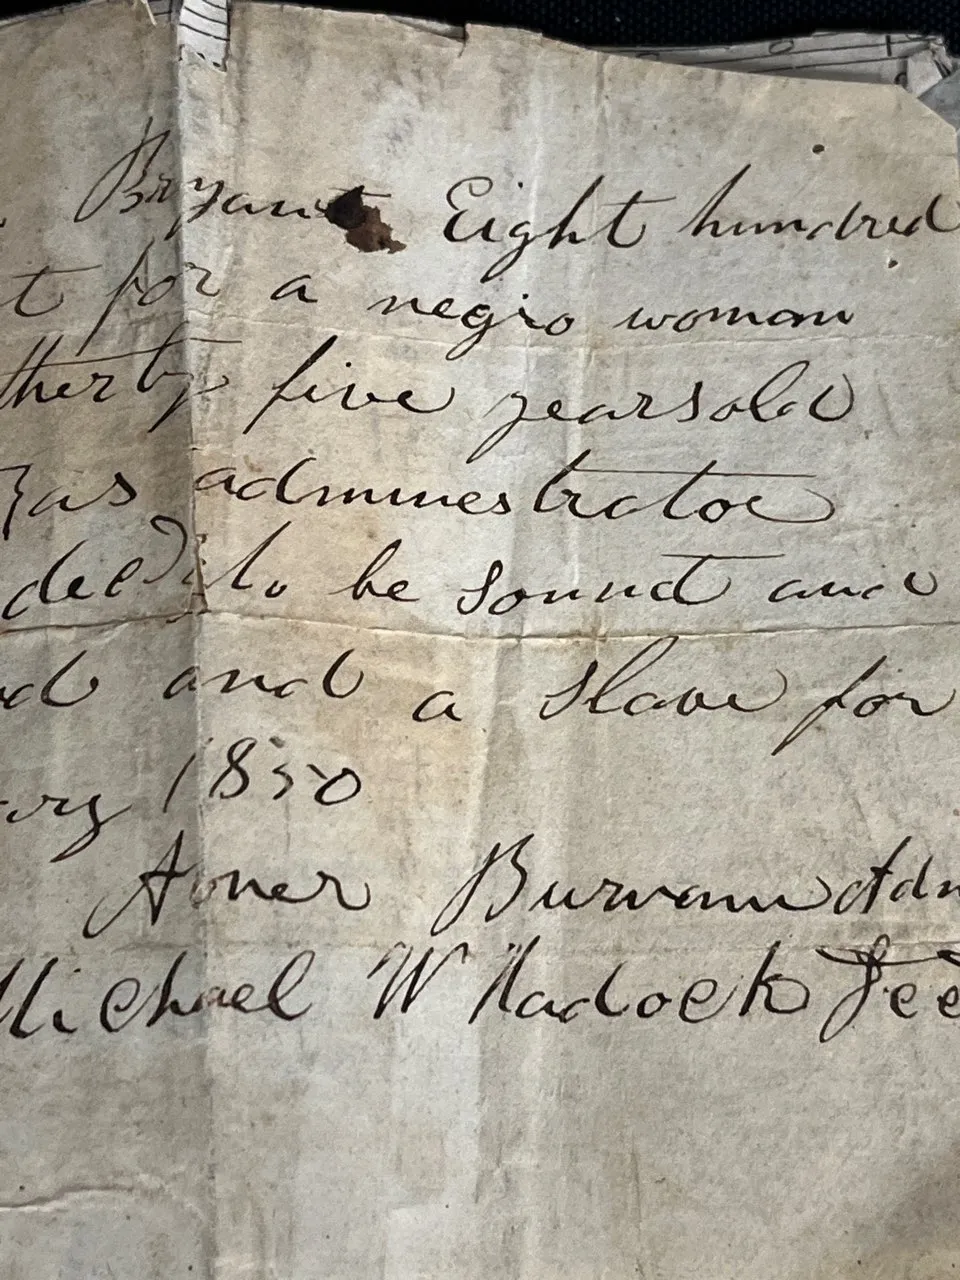 Bryant Eight hundred
t for a negro woman
therty five yearsold
as admenestrator
deed to be sound and
d and a slave for
ary 1850
Abner Adm
Michael W